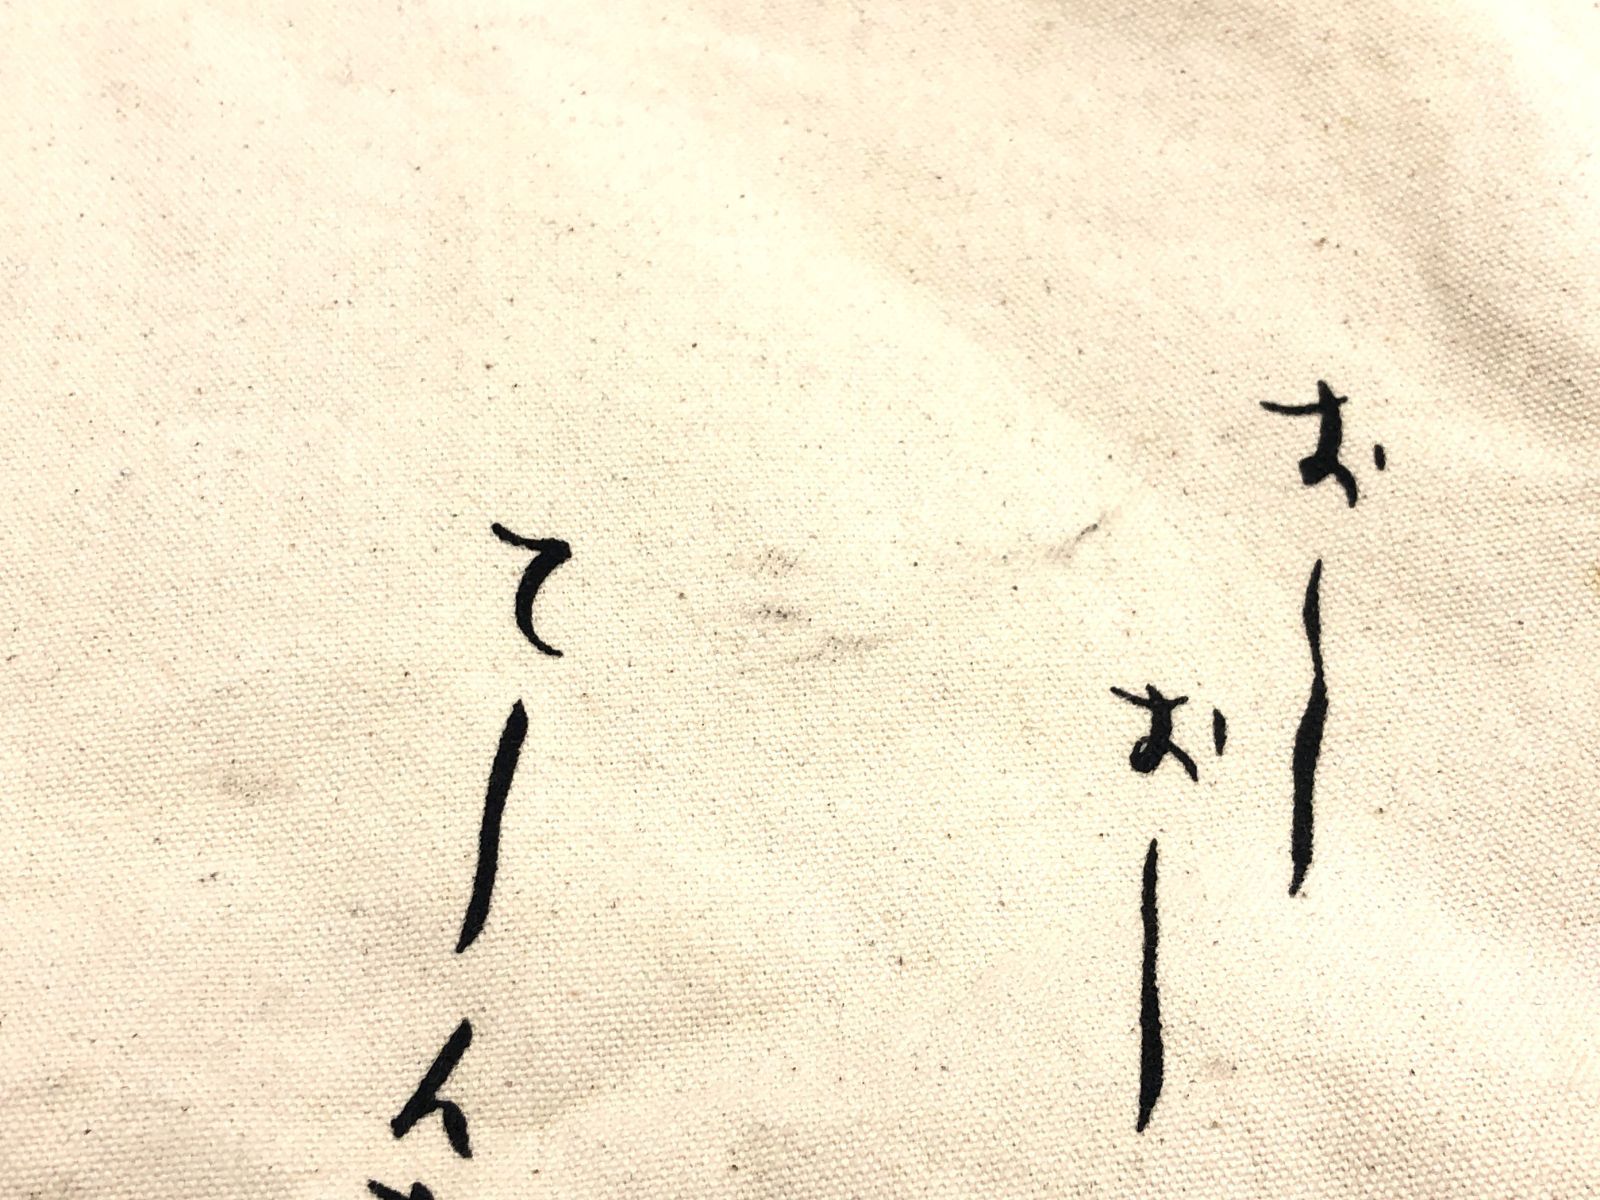 おー
おー
てーん